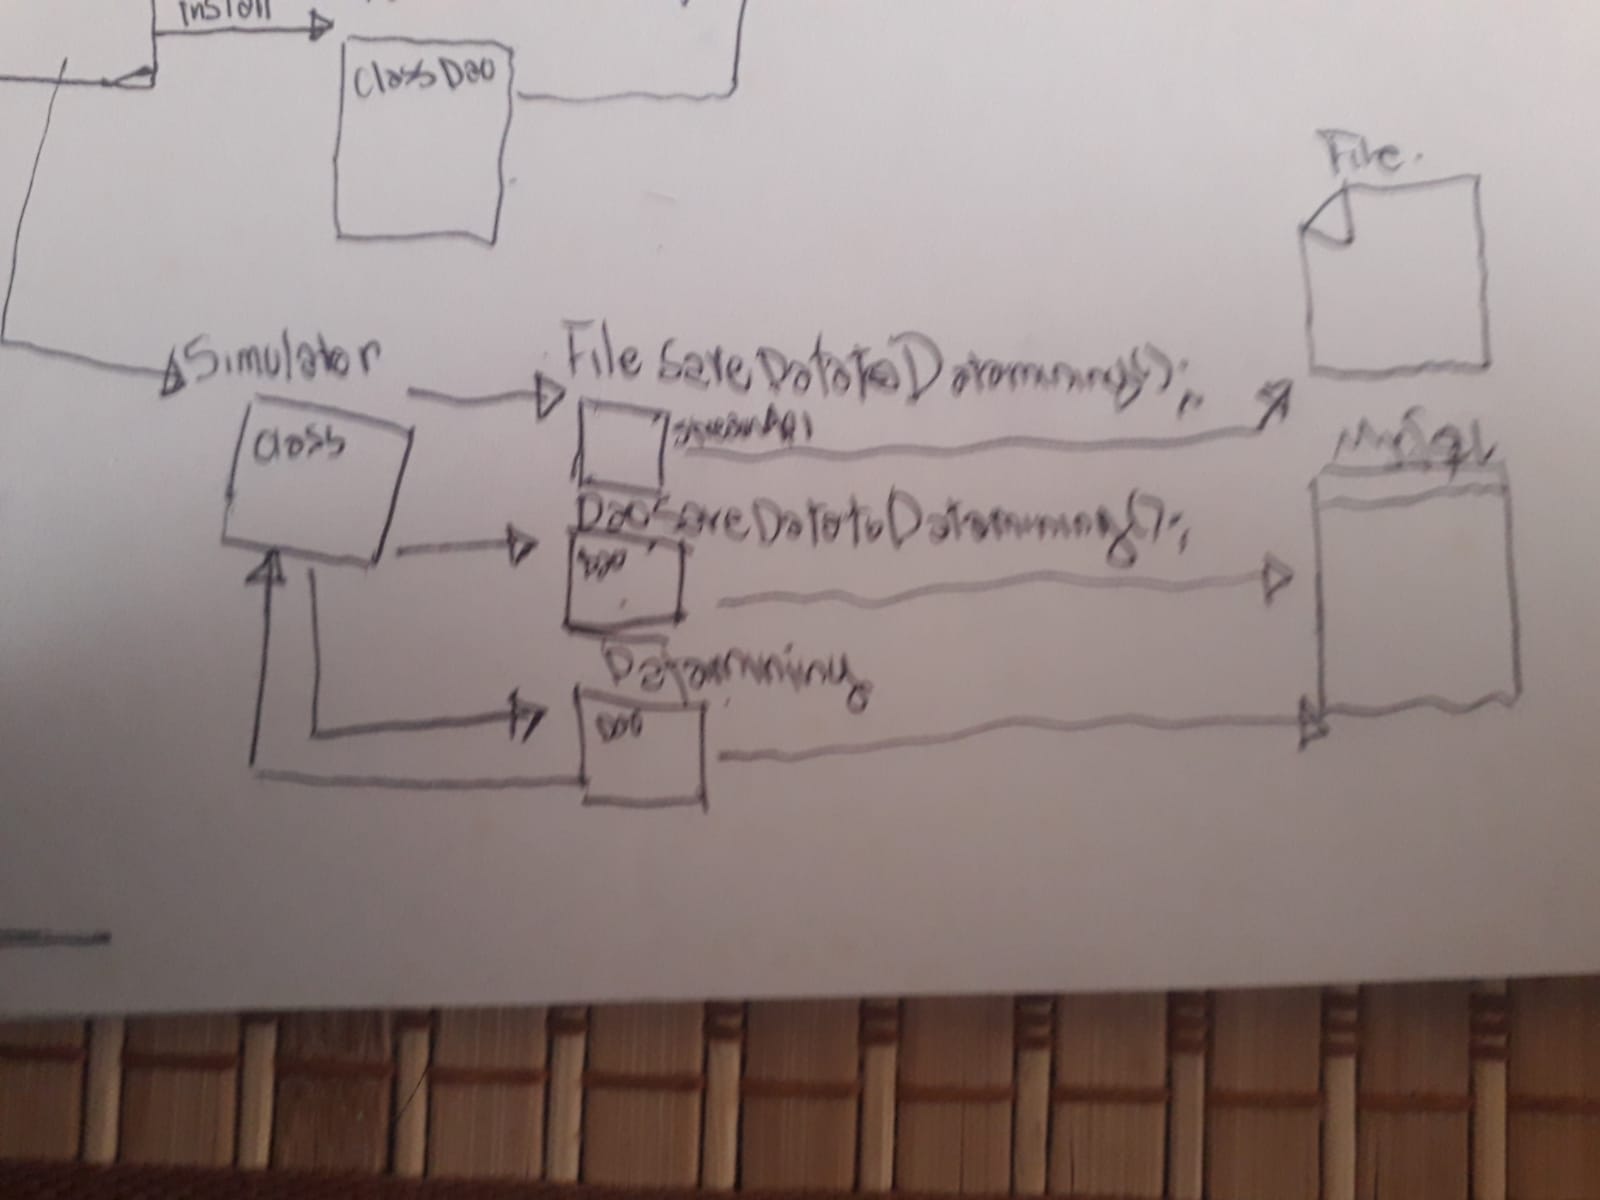 install
Class Dao
File.
Simulator
File SaveDatatoDatamining();
class
streamApi
MySQL
DaoSaveDatatoDatamining();
Dao
Datamining
Dao